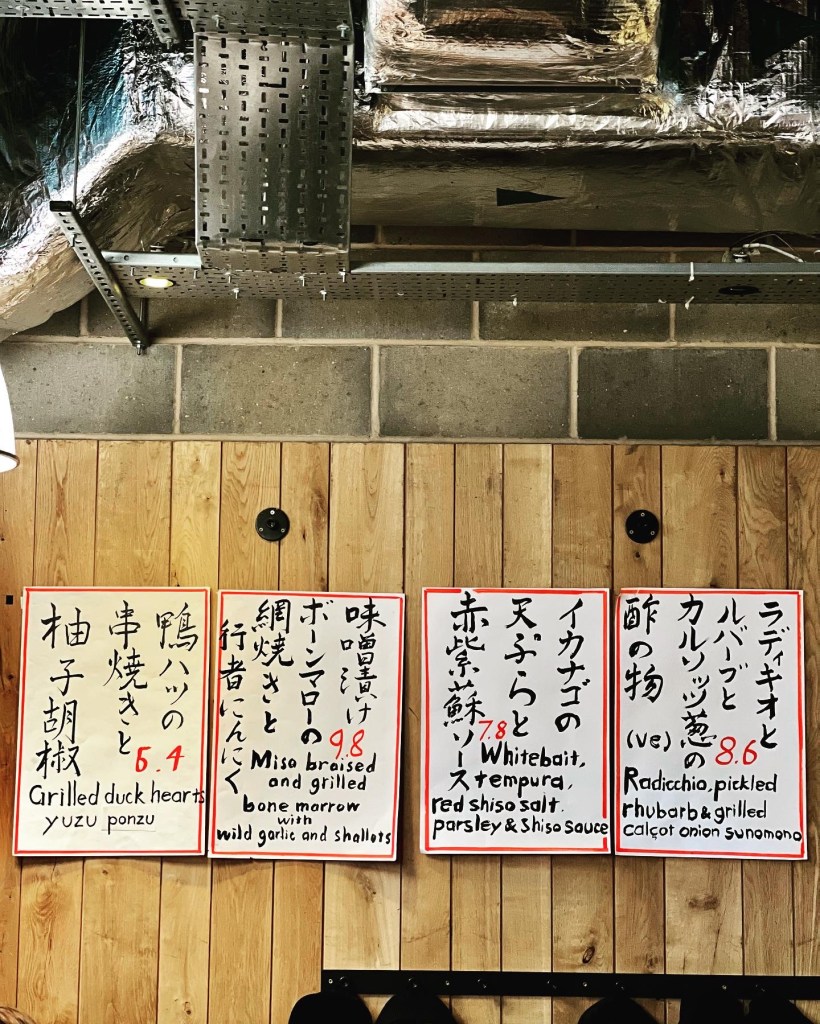 鴨ハツの
串焼きと
柚子胡椒
5.4
Grilled duck hearts
yuzu ponzu
味噌漬け
ボーンマローの
網焼きと
行者にんにく
9.8
Miso braised
and grilled
bone marrow
with
wild garlic and shallots
イカナゴの
天ぷらと
赤紫蘇ソース
7.8
Whitebait,
tempura,
red shiso salt.
parsley & Shiso sauce
ラディキオと
ルバーブと
カルソッツ葱の
酢の物
(ve)
8.6
Radicchio, pickled
rhubarb & grilled
calçot onion sunomono